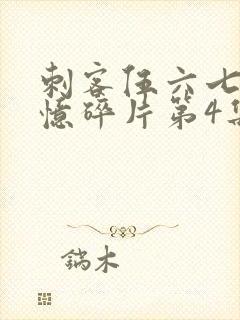 刺客伍六七
憶碎片第4集
鎬木